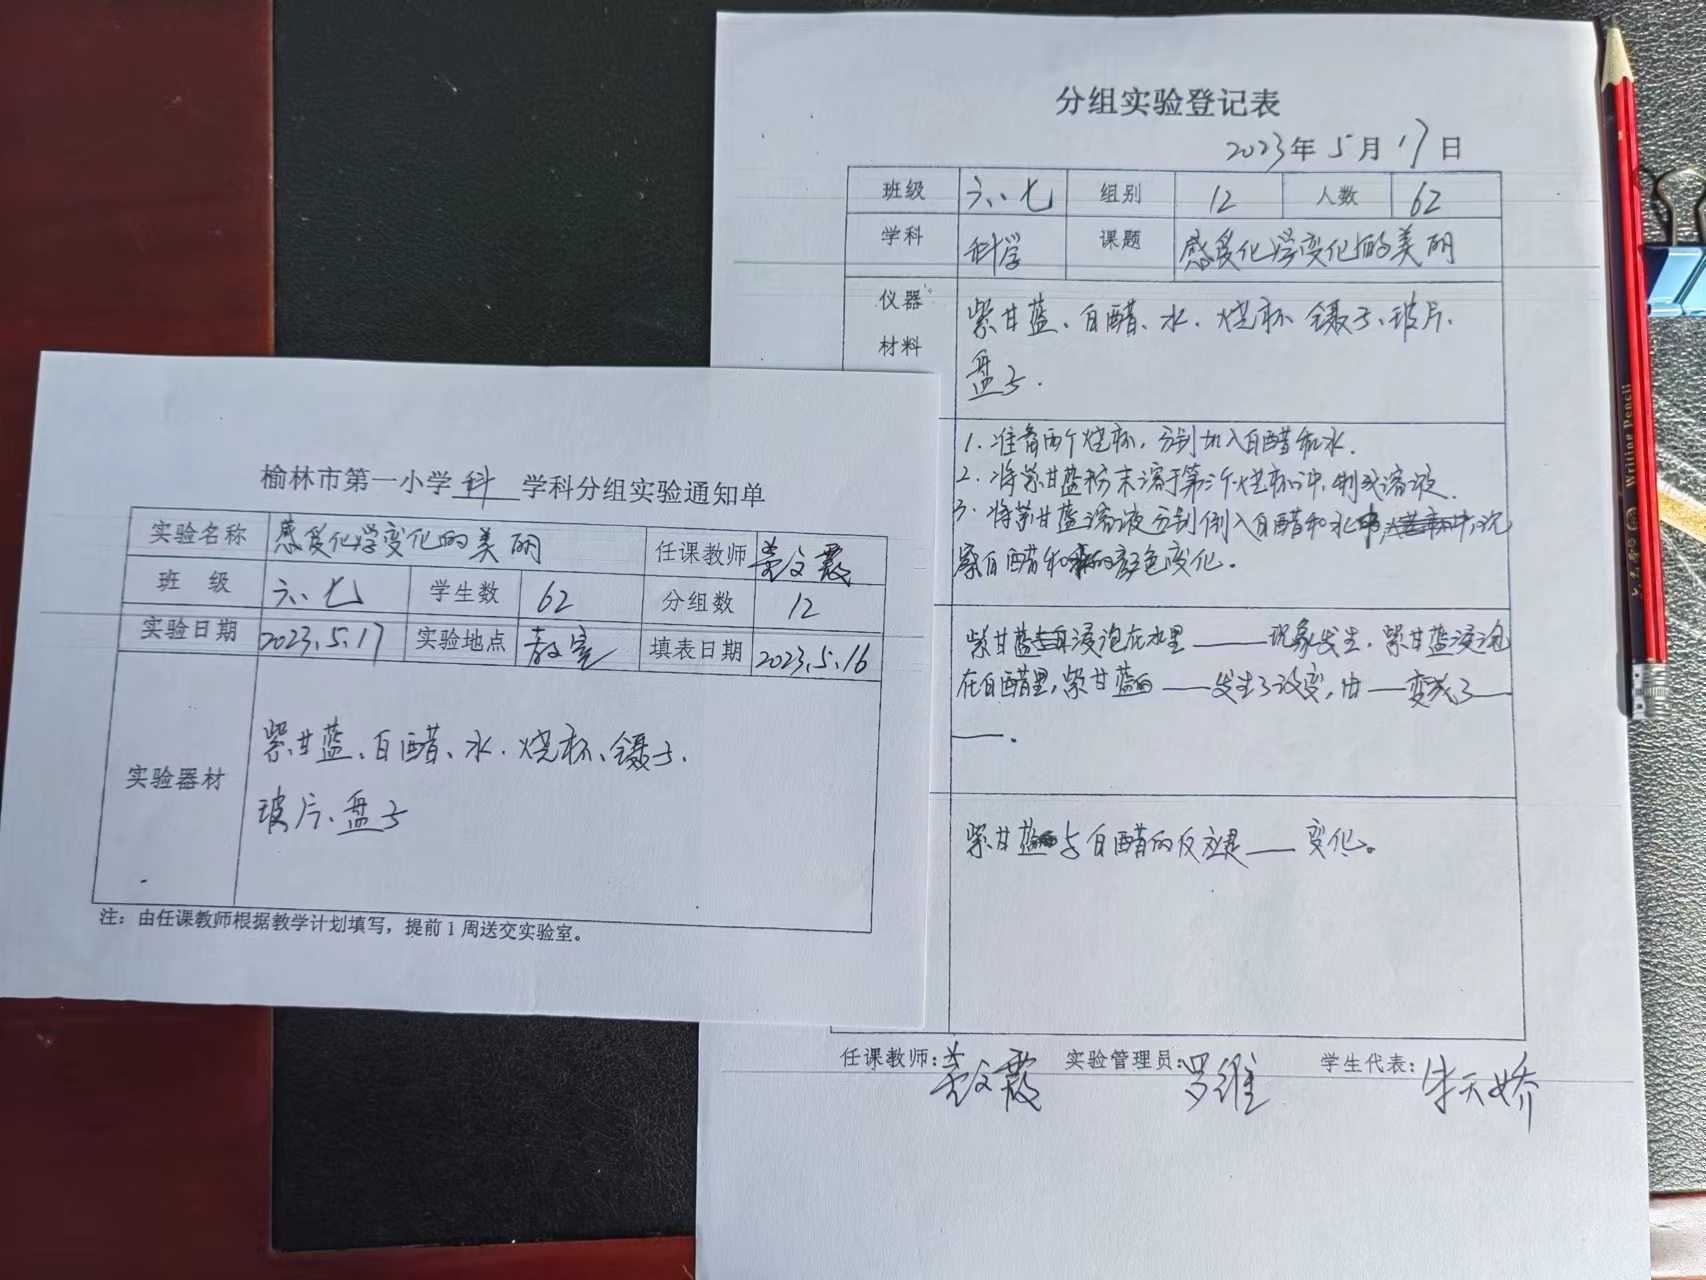 榆林市第一小学科学科分组实验通知单
实验名称 感受化学变化的美丽 任课教师 文霞
班 级 六、七 学生数 62 分组数 12
实验日期 2023.5.17 实验地点 教室 填表日期 2023.5.16
实验器材
紫甘蓝、白醋、水、烧杯、镊子、
玻片、盘子
注：由任课教师根据教学计划填写，提前1周送交实验室。
分组实验登记表
2023年5月17日
班级 六、七 组别 12 人数 62
学科 科学 课题 感受化学变化的美丽
仪器
材料
紫甘蓝、白醋、水、烧杯、镊子、玻片、
盘子.
1. 准备两个烧杯，分别加入白醋和水.
2. 将紫甘蓝粉末溶于第三个烧杯中，制成溶液.
3. 将紫甘蓝溶液分别倒入白醋和水中，观
察白醋和水的颜色变化。
紫甘蓝浸泡在水里——现象发生，紫甘蓝浸泡
在白醋里，紫甘蓝的——发生了改变，由——变成了——
——.
紫甘蓝与白醋的反应是——变化。
任课教师： 文霞 实验管理员：罗维 学生代表：朱天娇
Writing Pencil